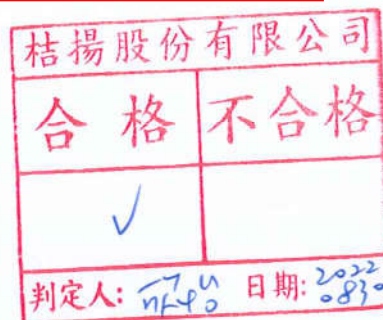 桔揚股份有限公司
合格 不合格
✓
判定人: 日期: 2022
0830